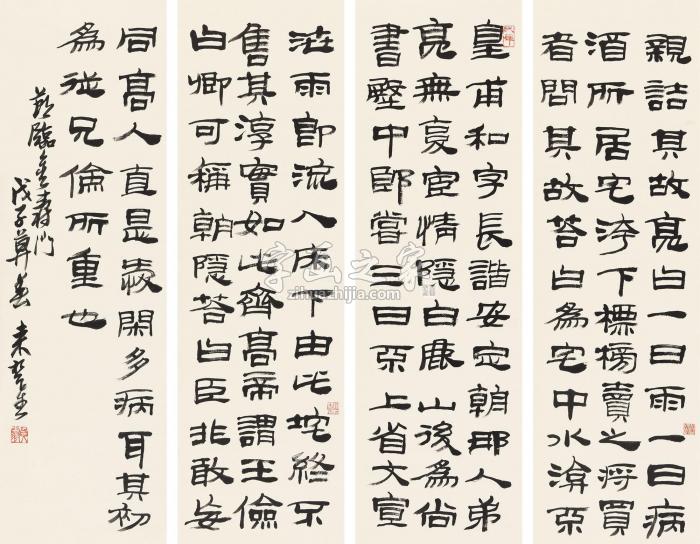 親詰其故亮白一日雨一日病
酒所居宅洿下標榜賣之將買
者問其故荅白為宅中水淹不
皇甫和字長諧安定朝那人弟
亮無夐宦情隱白鹿山後為尚
書殿中郎嘗三日不上省文宣
泄雨即流入床下由此宅終不
售其淳實如此齊高帝謂王儉
白卿可稱朝隱荅白臣非敢妄
同高人直是愛閑多病耳其初
為從兄倫所重也
節臨金壽門
戊子莫春 來楚生
字画之家
zihuazhijia.com